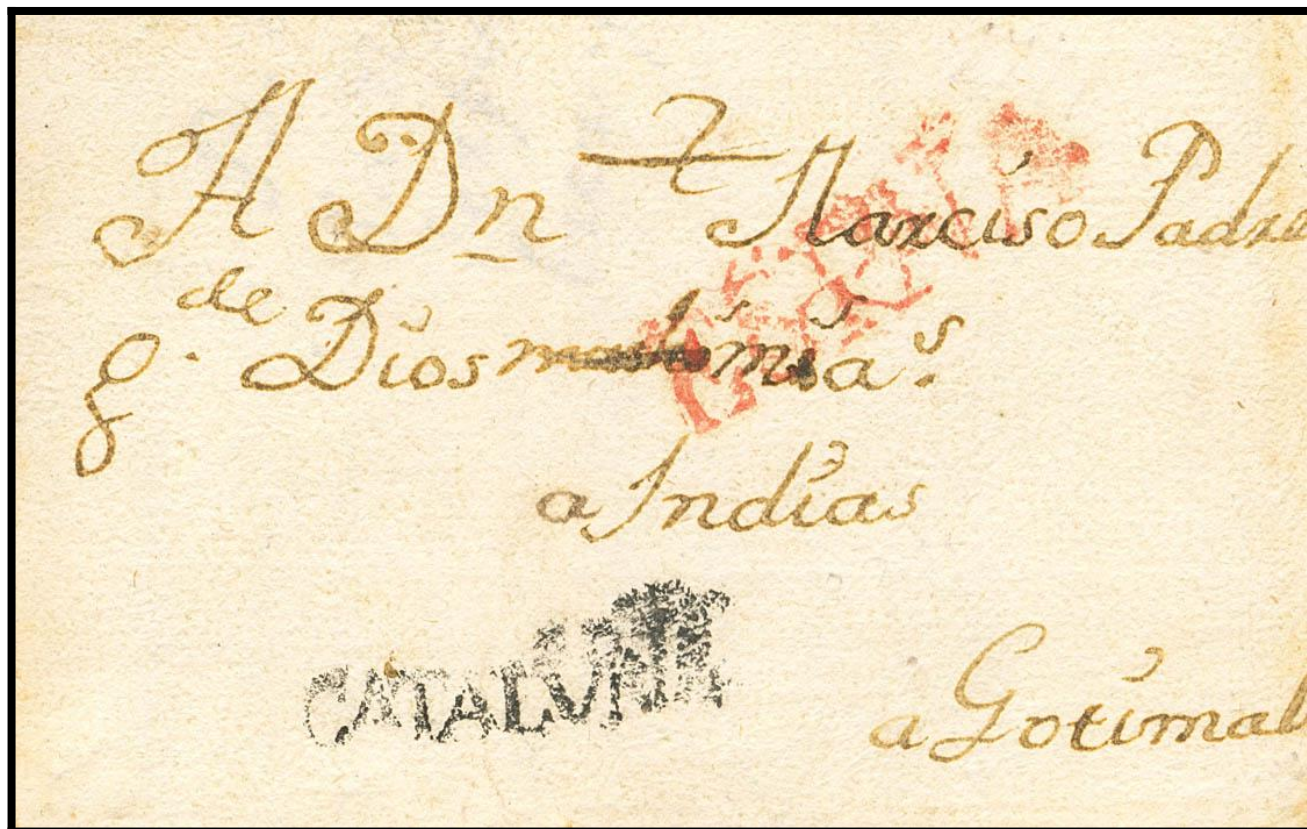 A Dn Narciso Padre
de
g. Dios ms as.
a Indias
CATALVÑA
a Gotimal